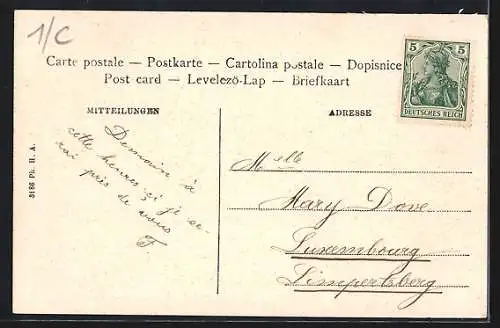 1/C
Carte postale — Postkarte — Cartolina postale — Dopisnice
Post card — Levelező-Lap — Briefkaart
5 5
DEUTSCHES REICH
MITTEILUNGEN
ADRESSE
Demain à
cette heure-ci je se-
rai près de vous
F.
3186 Ph. H. A.
Melle
Mary Dove
Luxembourg
Limpertsberg